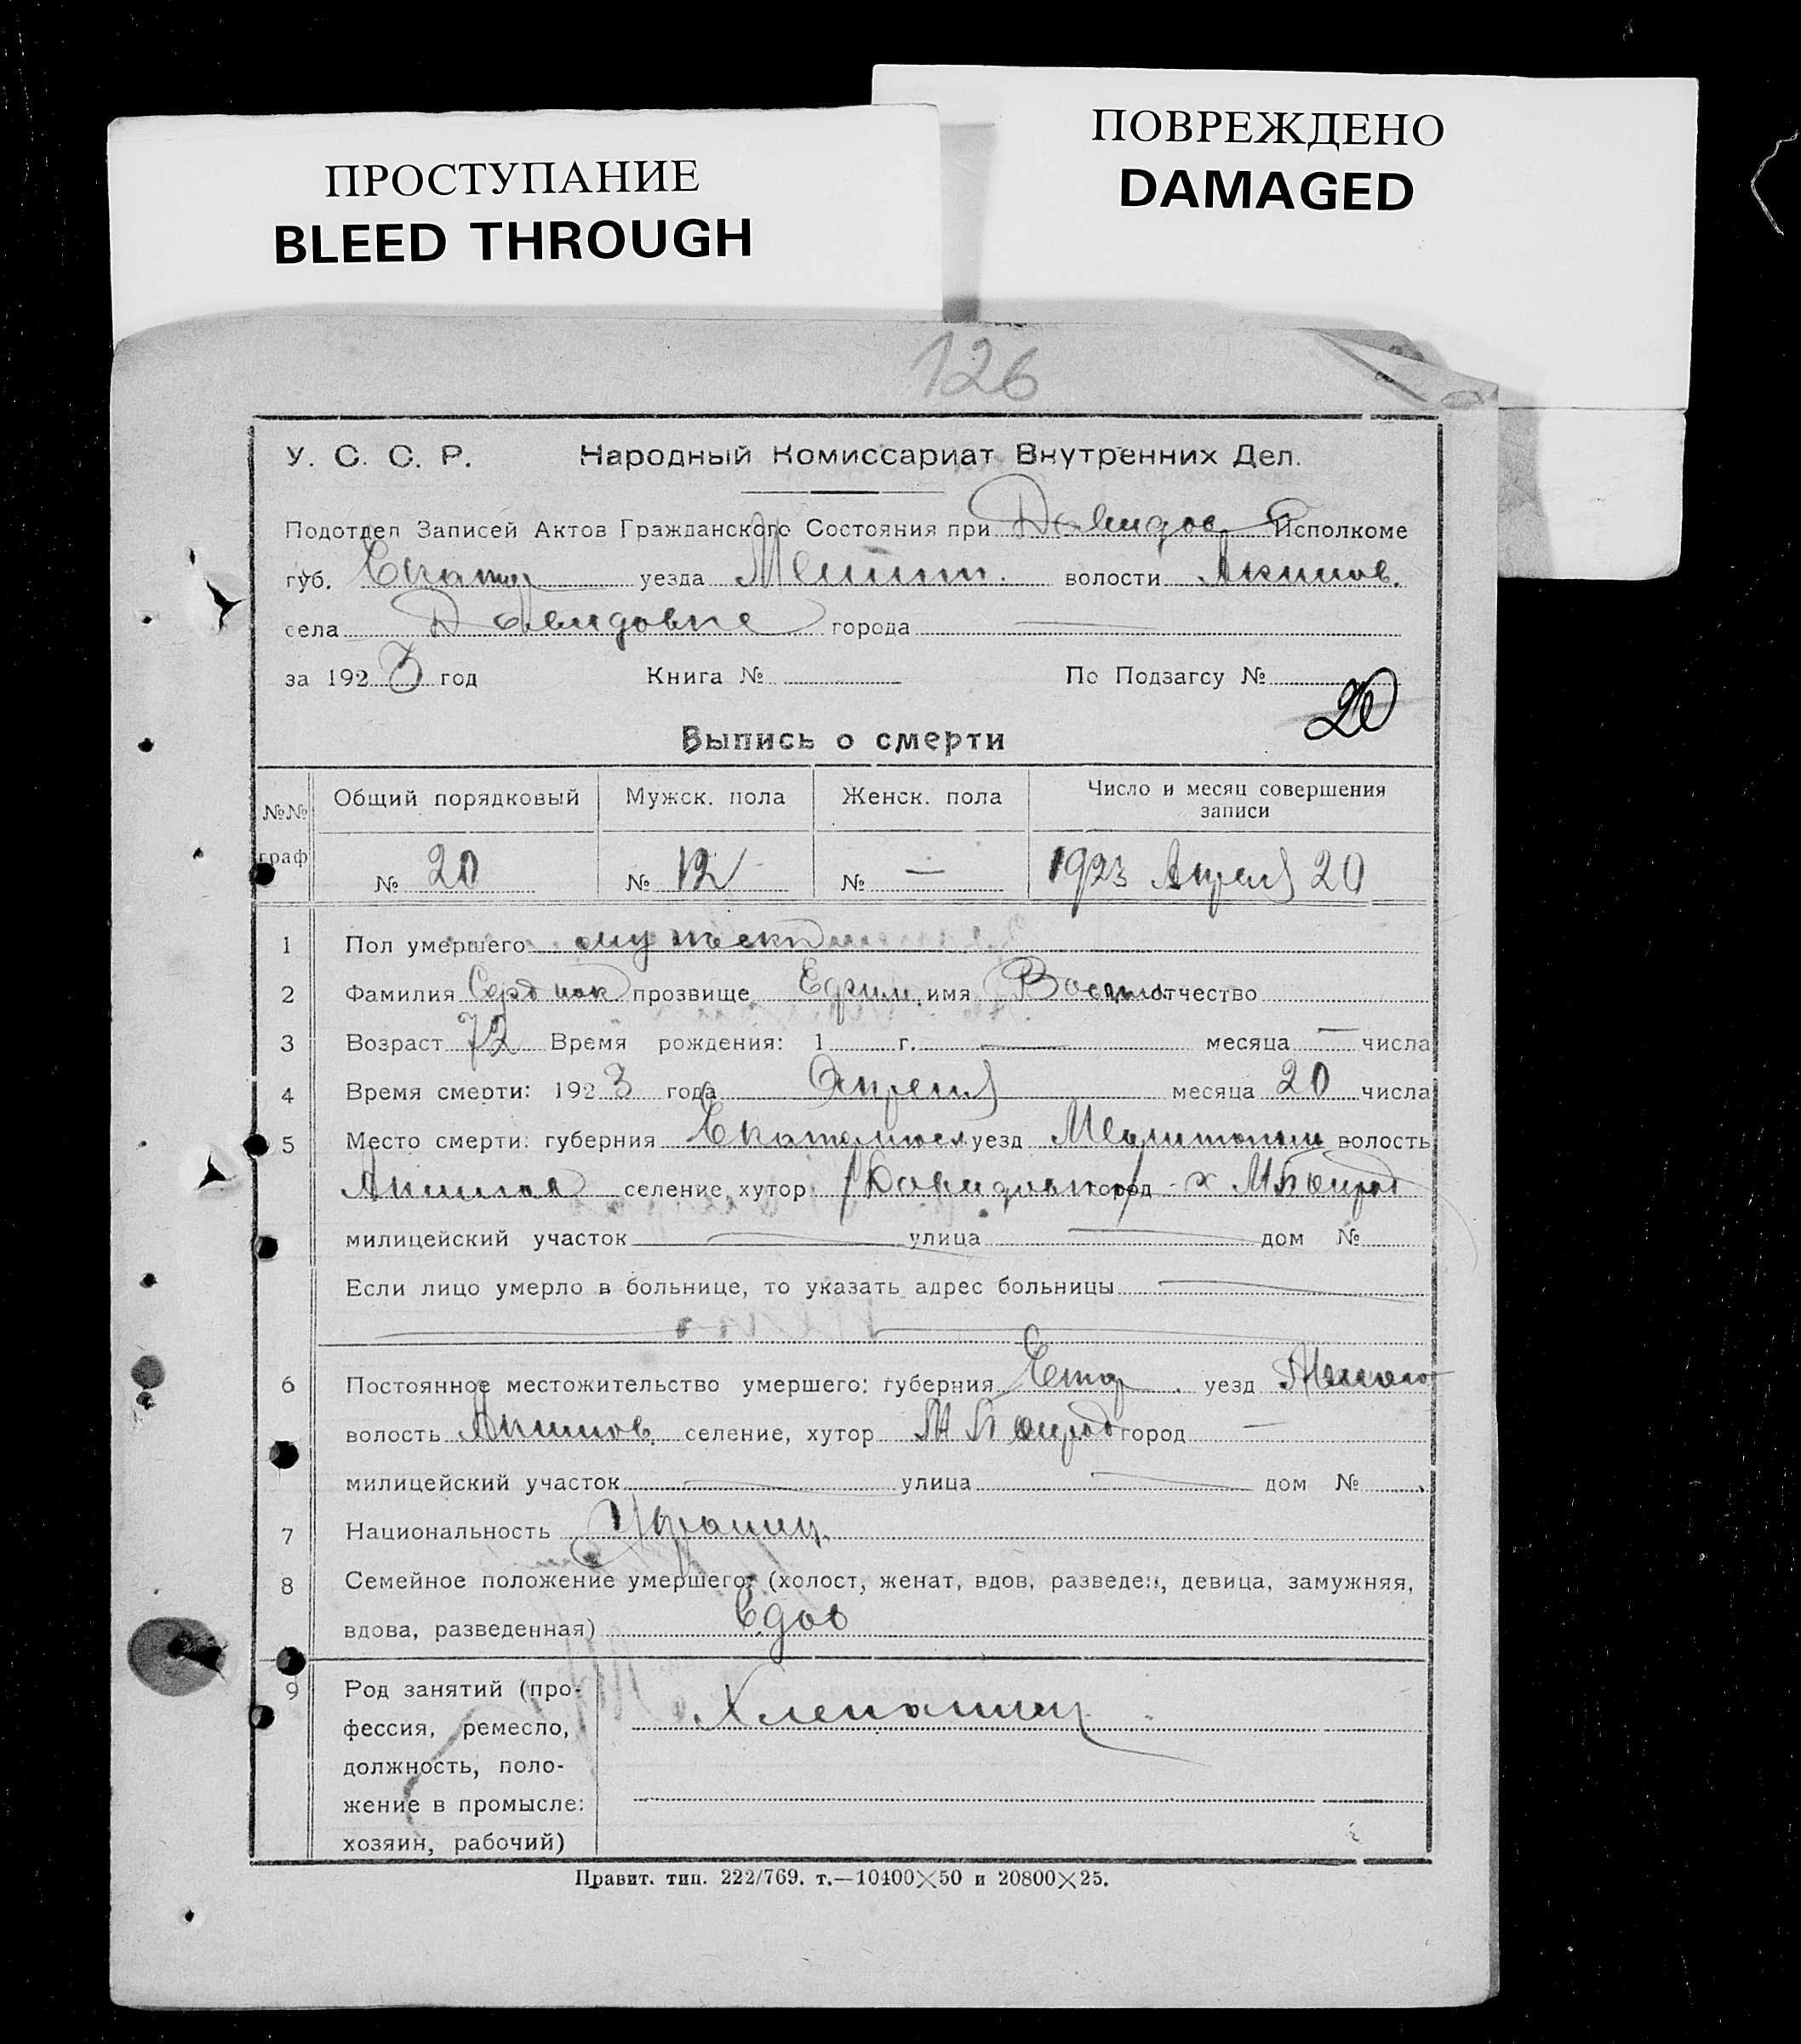 ПРОСТУПАНИЕ
BLEED THROUGH
ПОВРЕЖДЕНО
DAMAGED
126
У. С. С. Р. Народный Комиссариат Внутренних Дел.
Подотдел Записей Актов Гражданского Состояния при Давидов Исполкоме
губ. Екатер уезда Мелит. волости Акимов.
села Давидовке города —
за 1923 год Книга № По Подзагсу №
20
Выпись о смерти
№№ граф Общий порядковый Мужск. пола Женск. пола Число и месяц совершения записи
№ 20 № 12 № — 1923 Апреля 20
1 Пол умершего мужской
2 Фамилия прозвище Ефим имя отчество
3 Возраст 72 Время рождения: 1 г. — месяца — числа
4 Время смерти: 1923 года Апреля месяца 20 числа
5 Место смерти: губерния уезд волость
Акимов селение, хутор город х
милицейский участок — улица — дом №
Если лицо умерло в больнице, то указать адрес больницы —
6 Постоянное местожительство умершего: губерния уезд
волость Акимов. селение, хутор город —
милицейский участок — улица — дом №
7 Национальность Украинц.
8 Семейное положение умершего: (холост, женат, вдов, разведен, девица, замужняя,
вдова, разведенная) Вдов
9 Род занятий (про-
фессия, ремесло,
должность, поло-
жение в промысле:
хозяин, рабочий)
Правит. тип. 222/769. т.—10400×50 и 20800×25.